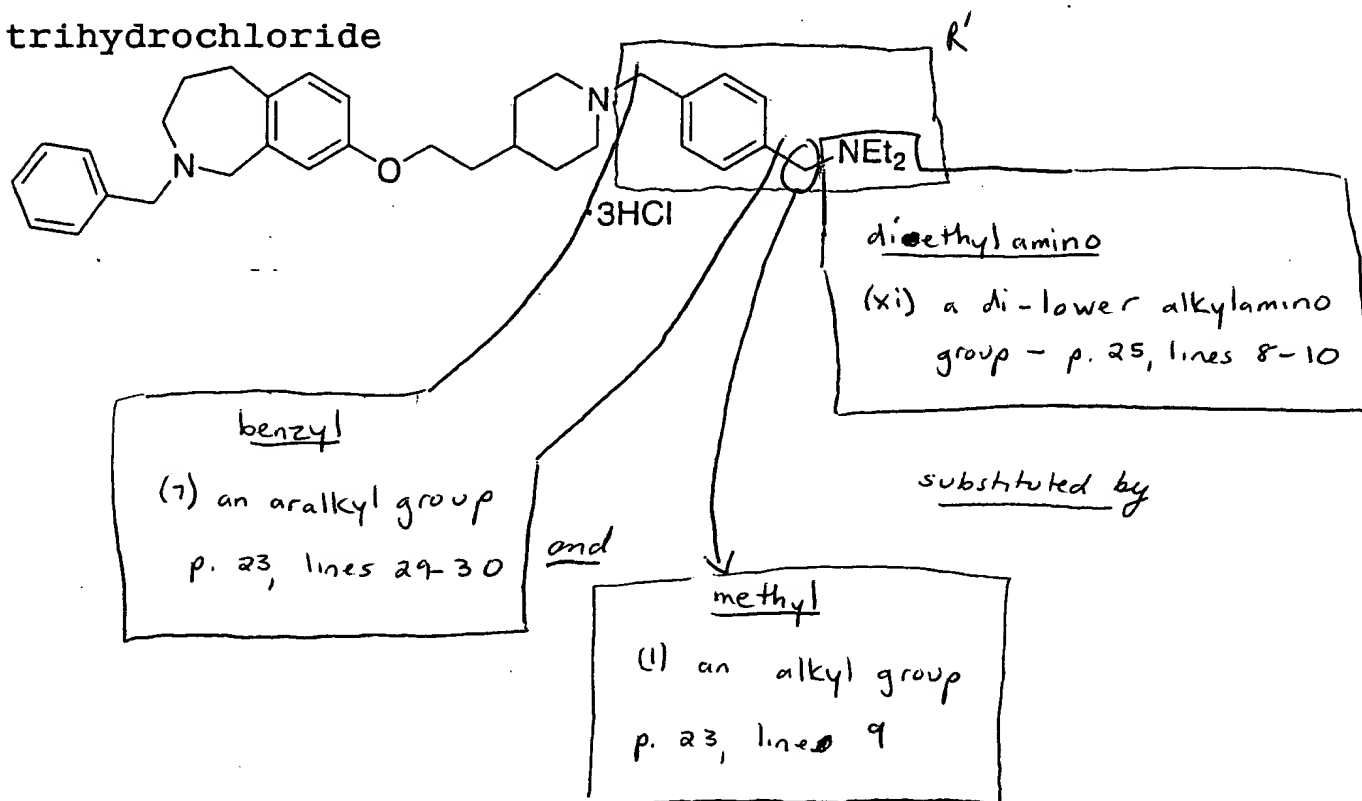 trihydrochloride
R'
N
NEt2
N
O
·3HCl
diethylamino
(xi) a di-lower alkylamino
group - p. 25, lines 8-10
benzyl
(7) an aralkyl group
p. 23, lines 29-30
and
substituted by
methyl
(1) an alkyl group
p. 23, line 9